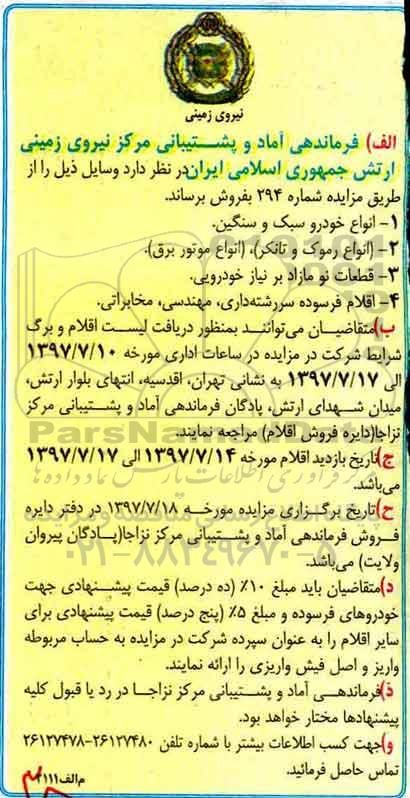 نیروی زمینی
الف) فرماندهی آماد و پشتیبانی مرکز نیروی زمینی
ارتش جمهوری اسلامی ایران در نظر دارد وسایل ذیل را از
طریق مزایده شماره ۲۹۴ بفروش برساند.
۱- انواع خودرو سبک و سنگین.
۲- (انواع رموک و تانکر)، (انواع موتور برق).
۳- قطعات نو مازاد بر نیاز خودرویی.
۴- اقلام فرسوده سررشته‌داری، مهندسی، مخابراتی.
ب) متقاضیان می‌توانند بمنظور دریافت لیست اقلام و برگ
شرایط شرکت در مزایده در ساعات اداری مورخه ۱۳۹۷/۷/۱۰
الی ۱۳۹۷/۷/۱۷ به نشانی تهران، اقدسیه، انتهای بلوار ارتش،
میدان شهدای ارتش، پادگان فرماندهی آماد و پشتیبانی مرکز
نزاجا(دایره فروش اقلام) مراجعه نمایند.
ج) تاریخ بازدید اقلام مورخه ۱۳۹۷/۷/۱۴ الی ۱۳۹۷/۷/۱۷
می‌باشد.
ح) تاریخ برگزاری مزایده مورخه ۱۳۹۷/۷/۱۸ در دفتر دایره
فروش فرماندهی آماد و پشتیبانی مرکز نزاجا(پادگان پیروان
ولایت) می‌باشد.
د) متقاضیان باید مبلغ ۱۰٪ (ده درصد) قیمت پیشنهادی جهت
خودروهای فرسوده و مبلغ ۵٪ (پنج درصد) قیمت پیشنهادی برای
سایر اقلام را به عنوان سپرده شرکت در مزایده به حساب مربوطه
واریز و اصل فیش واریزی را ارائه نمایند.
ذ) فرماندهی آماد و پشتیبانی مرکز نزاجا در رد یا قبول کلیه
پیشنهادها مختار خواهد بود.
و) جهت کسب اطلاعات بیشتر با شماره تلفن ۲۶۱۲۷۴۸۰-۲۶۱۲۷۴۷۸
تماس حاصل فرمائید.
م‌الف۱۱۱
ParsNamadData
۰۲۱-۸۸۳۴۹۶۷۰-۵